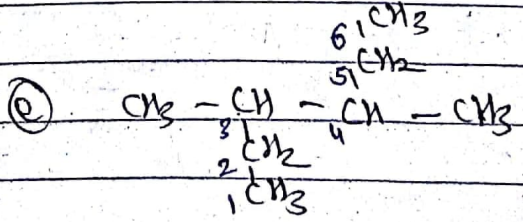 6 CH3
5 CH2
(e) CH3 - CH - CH - CH3
3 4
2 CH2
1 CH3